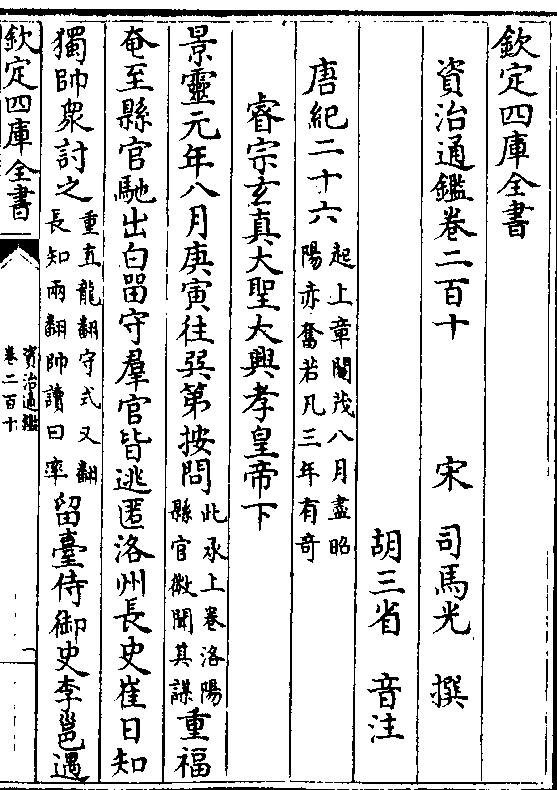 欽定四庫全書
資治通鑑卷二百十
宋 司馬光 撰
胡三省 音注
唐紀二十六
起上章閹茂八月盡昭
陽赤奮若凡三年有奇
睿宗玄真大聖大興孝皇帝下
景靈元年八月庚寅往巽第按問
此承上卷洛陽
縣官微聞其謀
重福
奄至縣官馳出白留守羣官皆逃匿洛州長史崔日知
獨帥衆討之
重直龍翻守式又翻
長知兩翻帥讀曰率
留臺侍御史李邕遇
欽定四庫全書
資治通鑑
卷二百十
一